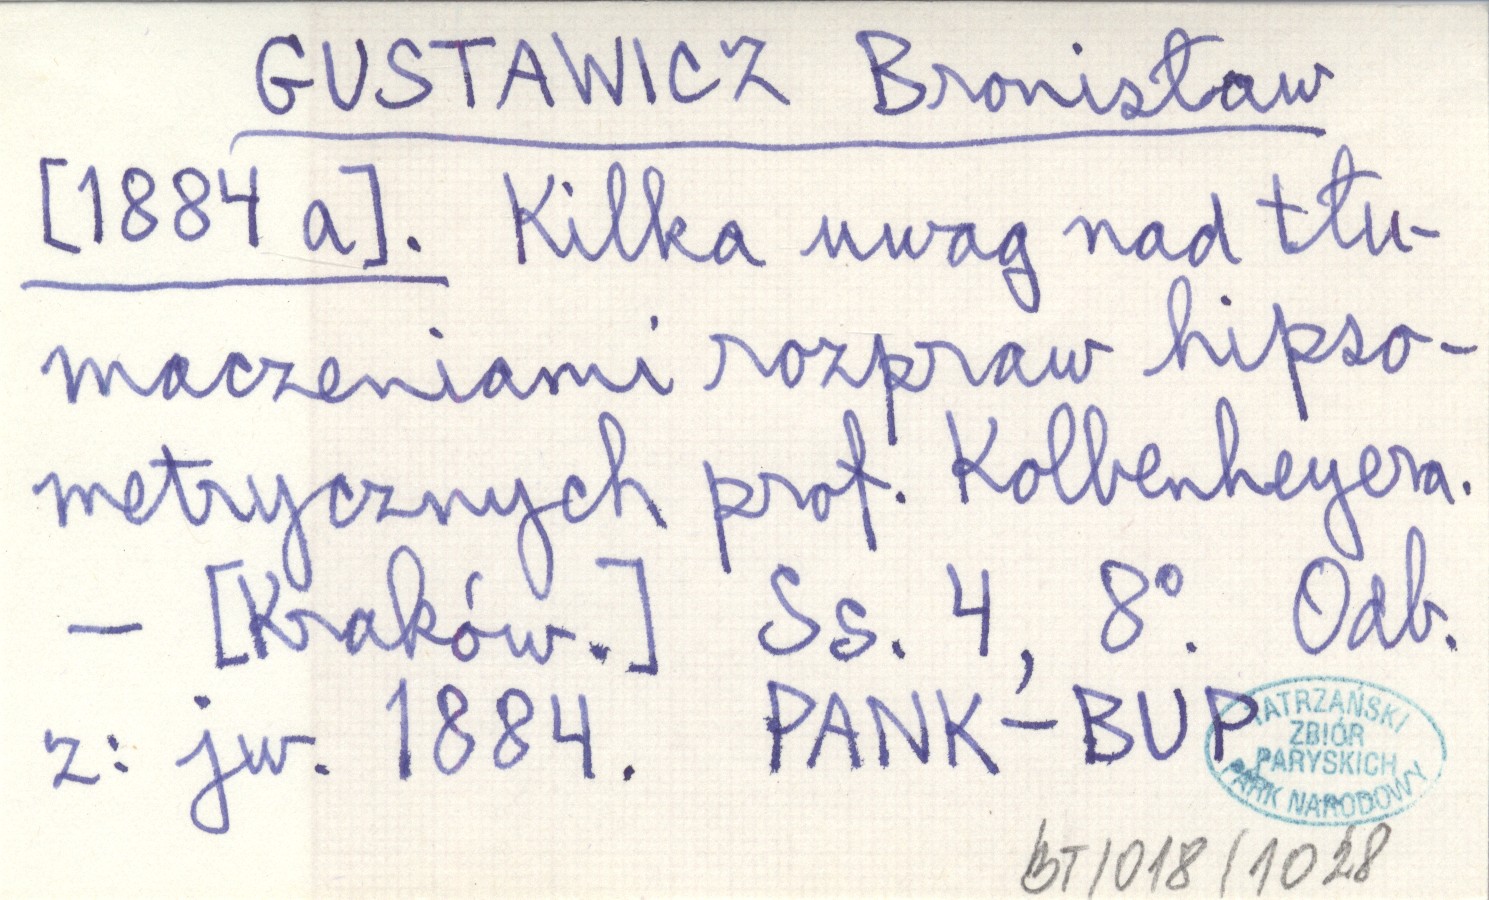 GUSTAWICZ Bronisław
[1884 a]. Kilka uwag nad tłu-
maczeniami rozpraw hipso-
metrycznych prof. Kolbenheyera.
— [Kraków.] Ss. 4, 8°. Odb.
z: jw. 1884. PANK-BUP
TATRZAŃSKI
ZBIÓR
PARYSKICH
PARK NARODOWY
BT/018/1028